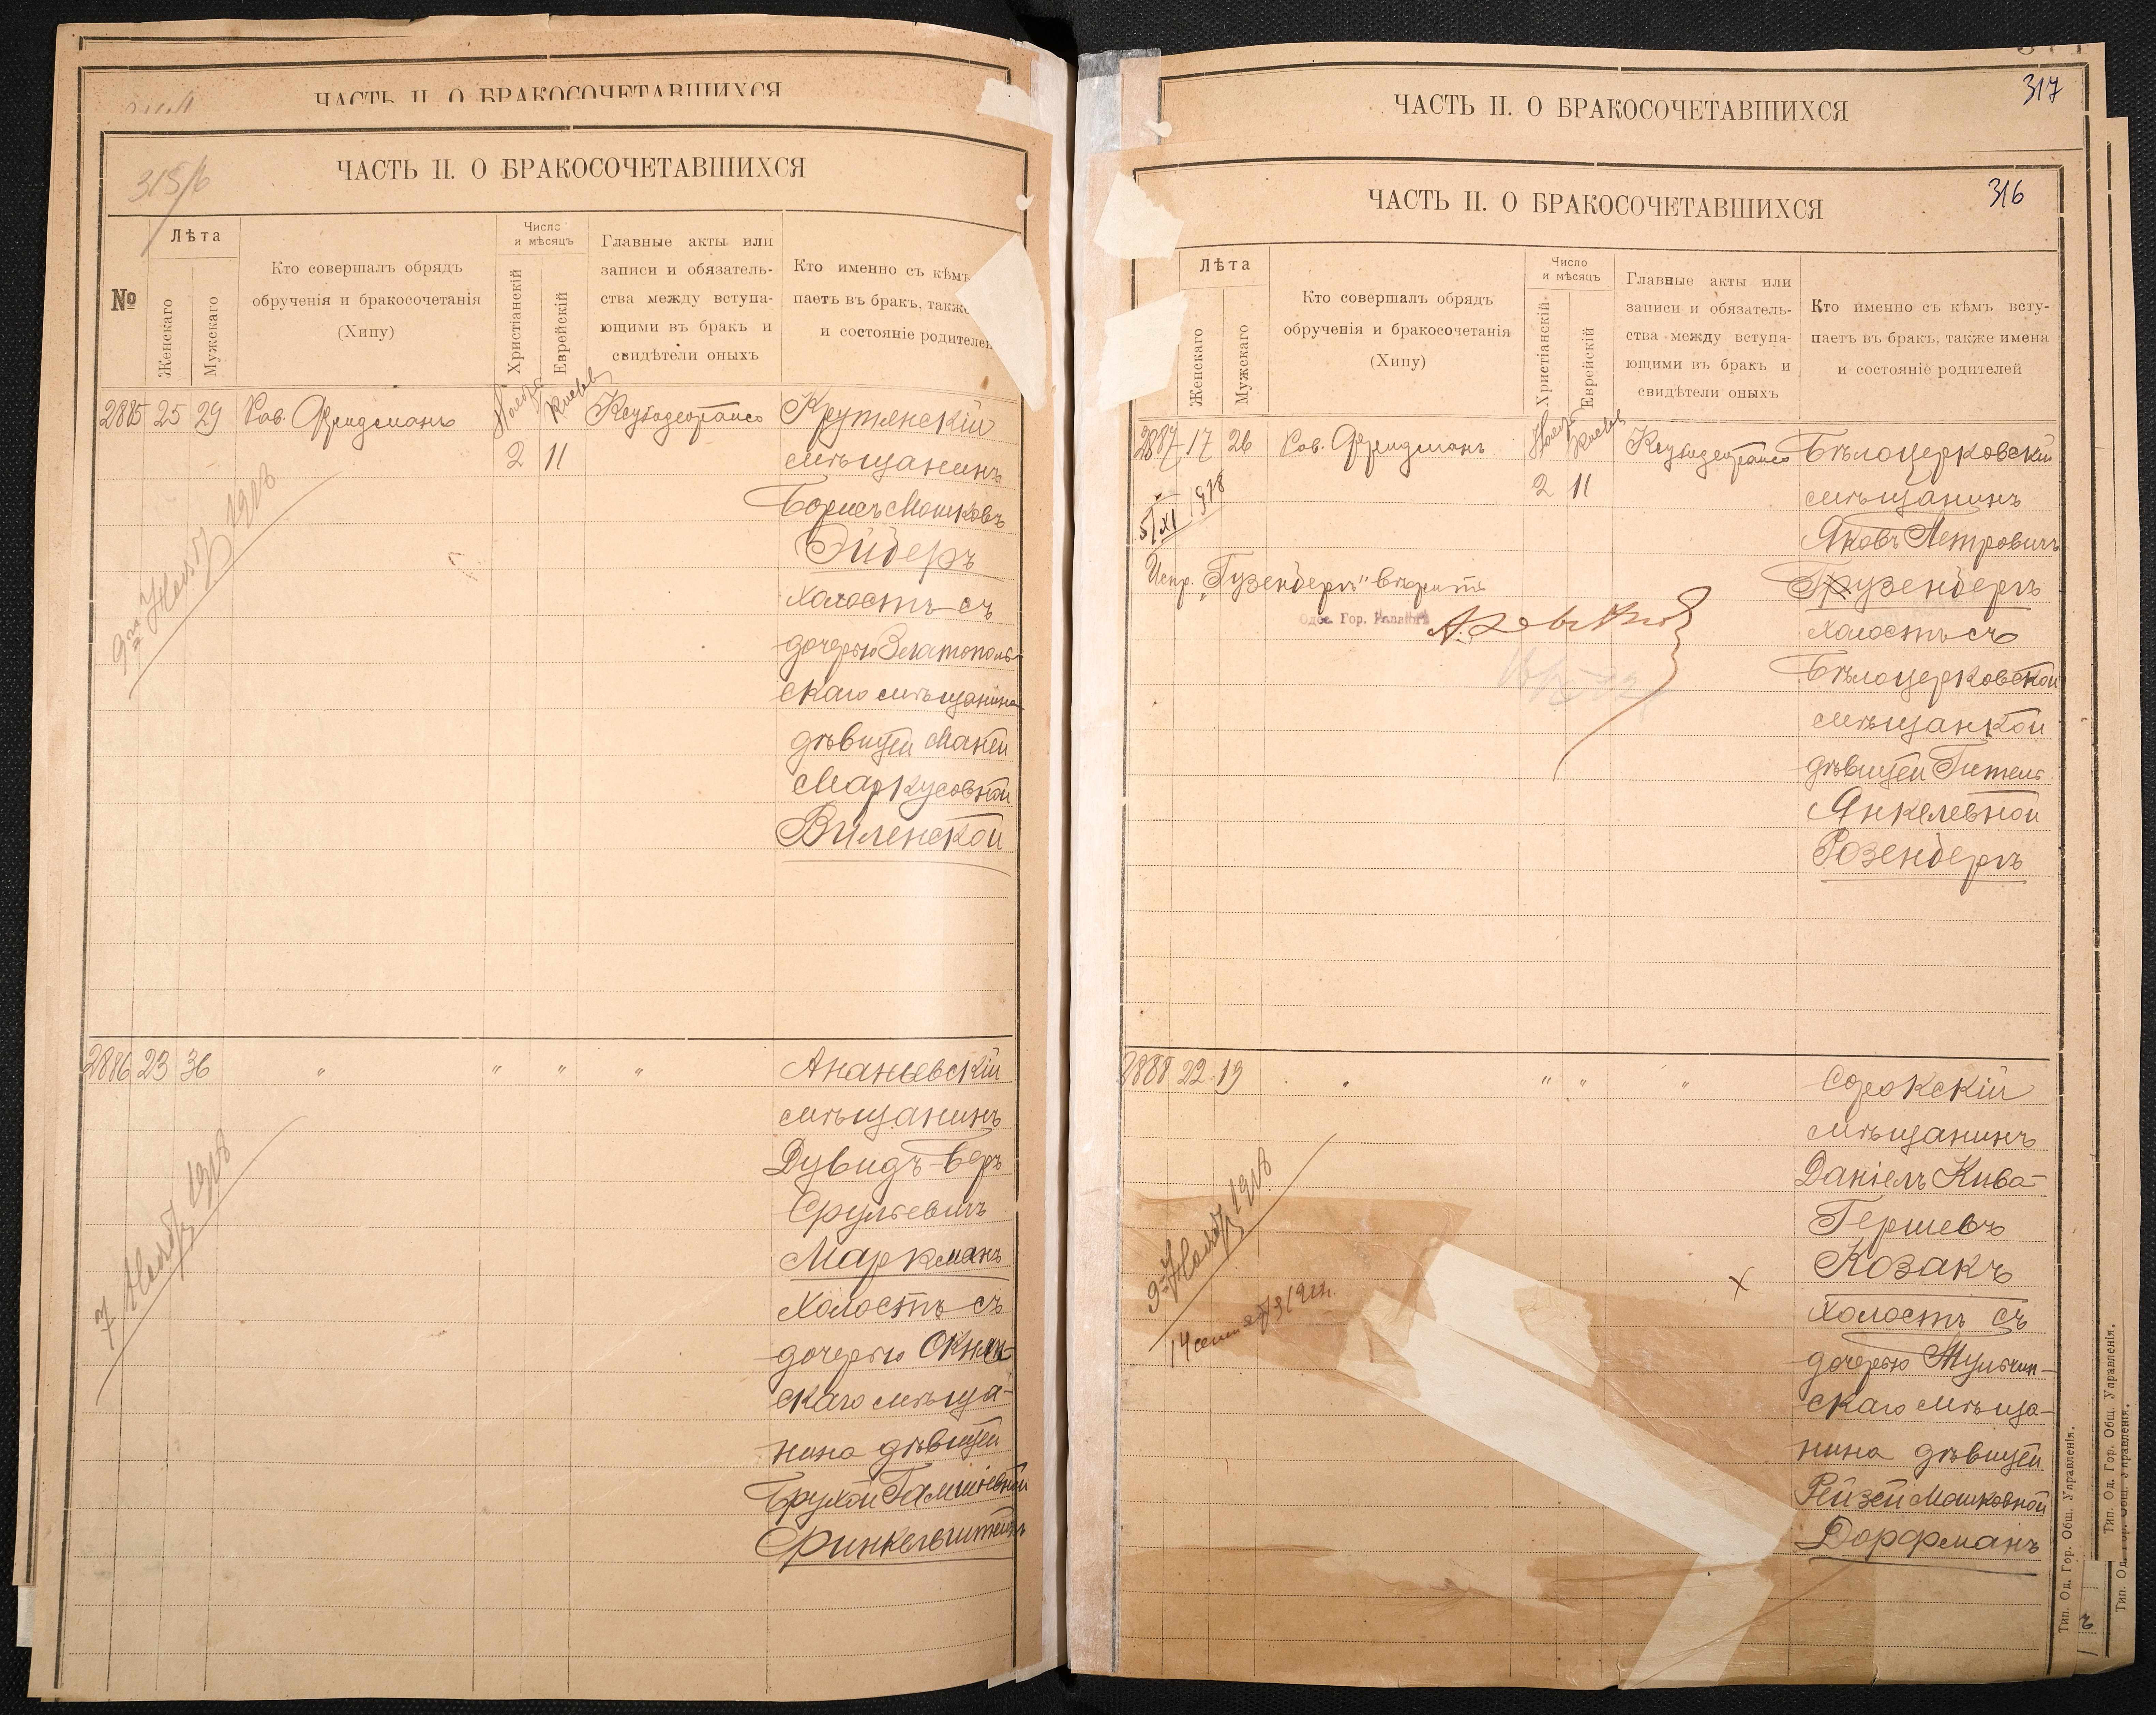 ЧАСТЬ II. О БРАКОСОЧЕТАВШИХСЯ
ЧАСТЬ II. О БРАКОСОЧЕТАВШИХСЯ
315/6
№
Лѣта
Женскаго
Мужскаго
Кто совершалъ обрядъ
обрученія и бракосочетанія
(Хипу)
Число
и мѣсяцъ
Христіанскій
Еврейскій
Главные акты или
записи и обязатель-
ства между вступа-
ющими въ бракъ и
свидѣтели оныхъ
Кто именно съ кѣмъ
паетъ въ бракъ, также
и состояніе родителей
2885 25 29 Рав. Фридманъ Ноября Кислев Крутянскій
2 11 мѣщанинъ
Борисъ Мошковъ
Эйдеръ
холостъ съ
дочерью Златополь-
скаго мѣщанина
дѣвицей Маней
Маркусовной
Виленской
9го Нояб 1918
2886 23 36 " " " " Ананьевскій
мѣщанинъ
Дувидъ-Беръ
Срулевичъ
Маркманъ
холостъ съ
дочерью Окнян-
скаго мѣща-
нина дѣвицей
Брухой Гамшіевной
Финкельштейнъ
7 Нояб 1918
317
ЧАСТЬ II. О БРАКОСОЧЕТАВШИХСЯ
316
ЧАСТЬ II. О БРАКОСОЧЕТАВШИХСЯ
Лѣта
Женскаго
Мужскаго
Кто совершалъ обрядъ
обрученія и бракосочетанія
(Хипу)
Число
и мѣсяцъ
Христіанскій
Еврейскій
Главные акты или
записи и обязатель-
ства между вступа-
ющими въ бракъ и
свидѣтели оныхъ
Кто именно съ кѣмъ всту-
паетъ въ бракъ, также имена
и состояніе родителей
2887 17 26 Рав. Фридманъ Нояб Кислев Бѣлоцерковскій
2 11 мѣщанинъ
5/XI 1918
Яковъ Петровичъ
Испр. "Гузенбергъ" вѣрить
Грузенбергъ
Одес. Гор. Раввинъ
холостъ съ
Бѣлоцерковской
мѣщанкой
дѣвицей Гитель
Янкелевной
Розенбергъ
2888 22 19 " " " " Сорокскій
мѣщанинъ
Даніелъ Кива-
Гершевъ
Козакъ
холостъ съ
дочерью Тульчин-
скаго мѣща-
нина дѣвицей
Рейзей Мошковной
Дорфманъ
9 Нояб 1918
Тип. Од. Гор. Общ. Управленія.
Тип. Од. Гор. Общ. Управленія.